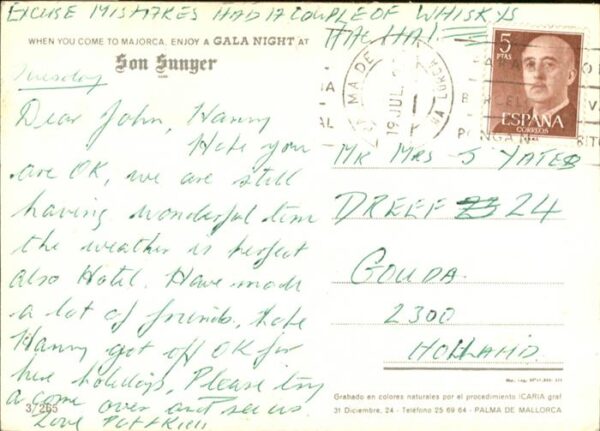 EXCUSE MISTAKES HAD A COUPLE OF WHISKYS
HA! HA!
WHEN YOU COME TO MAJORCA, ENJOY A GALA NIGHT AT
Son Sunyer
Tuesday
Dear John, Hanny
Hope you
are OK, we are still
having wonderful time
the weather is perfect
also Hotel. Have made
a lot of friends. Hope
Hanny got off OK for
her holidays, Please try
a come over and see us.
Love
3/265
5
PTAS
ESPAÑA
CORREOS
19 JUL.
MR MRS J YATES
DREEF 24
GOUDA
2300
HOLLAND
Grabado en colores naturales por el procedimiento ICARIA graf
31 Diciembre, 24 - Teléfono 25 69 64 - PALMA DE MALLORCA